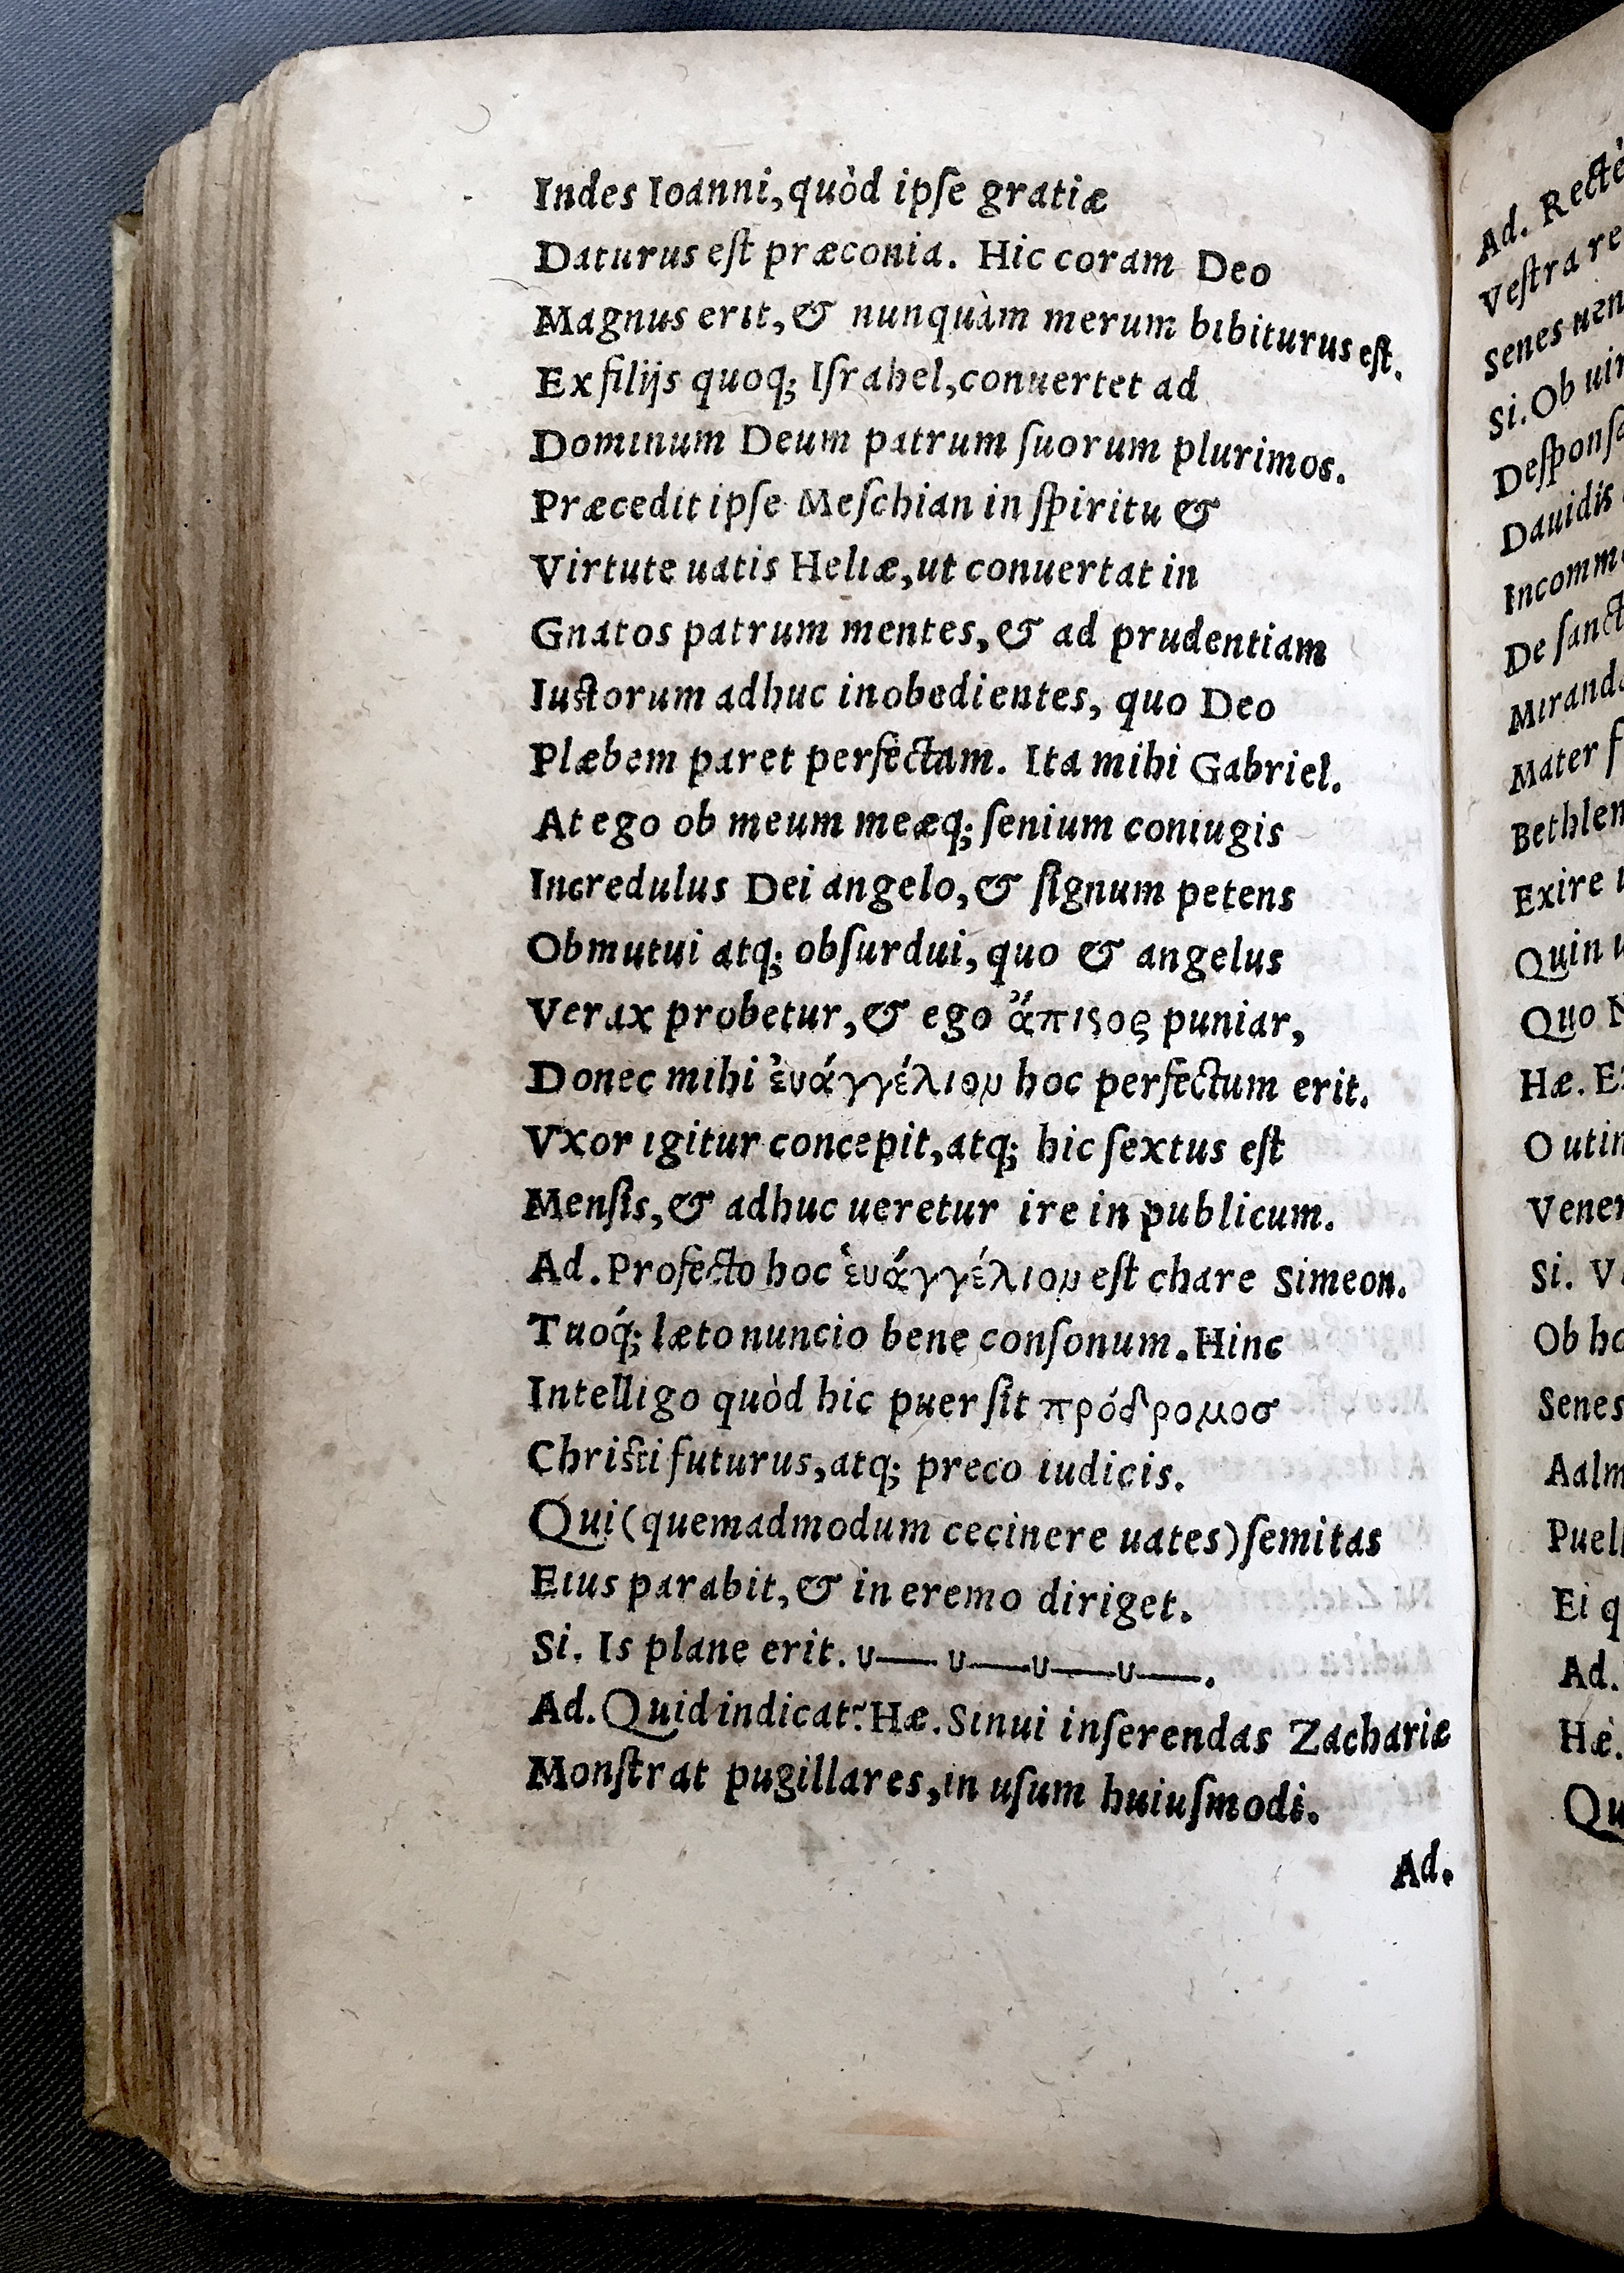 Indes Ioanni, quòd ipſe gratiæ
Daturus eſt præconia. Hic coram Deo
Magnus erit, & nunquàm merum bibiturus eſt.
Ex filijs quoq; Iſrahel, conuertet ad
Dominum Deum patrum ſuorum plurimos.
Præcedit ipſe Meſchian in ſpiritu &
Virtute uatis Heliæ, ut conuertat in
Gnatos patrum mentes, & ad prudentiam
Iuſtorum adhuc inobedientes, quo Deo
Plæbem paret perfectam. Ita mihi Gabriel.
At ego ob meum meæq; ſenium coniugis
Incredulus Dei angelo, & ſignum petens
Obmutui atq; obſurdui, quo & angelus
Verax probetur, & ego ἄπιϛος puniar,
Donec mihi ἐυάγγέλιον hoc perfectum erit.
Vxor igitur concepit, atq; hic ſextus eſt
Menſis, & adhuc ueretur ire in publicum.
Ad. Profecto hoc ἐυάγγέλιον eſt chare Simeon.
Tuoq́; læto nuncio bene conſonum. Hinc
Intelligo quòd hic puer ſit πρόδρομοσ
Chriſti futurus, atq; preco iudicis.
Qui (quemadmodum cecinere uates) ſemitas
Eius parabit, & in eremo diriget.
Si. Is plane erit. υ— υ—υ—υ—.
Ad. Quid indicat? Hæ. Sinui inſerendas Zachariæ
Monſtrat pugillares, in uſum huiuſmodi.
Ad.
Ad. Rectè
Veſtra re
Senes uen
Si. Ob uir
Deſponſa
Dauidis
Incomm
De ſanct
Miranda
Mater f
Bethlem
Exire
Quin u
Quo N
Hæ. E
O utin
Vener
Si. V
Ob ho
Senes
Aalm
Puell
Ei q
Ad.
Hæ.
Qu